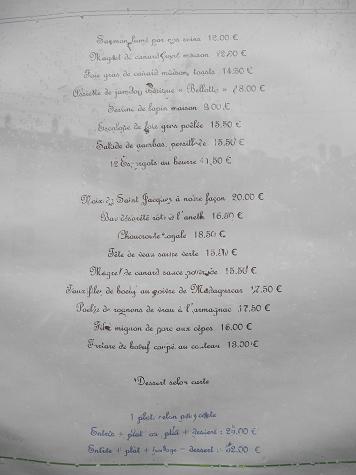 Saumon fumé par nos soins 12.00 €
Magret de canard fumé maison 12.00 €
Foie gras de canard maison, toasts 14.50 €
Assiette de jambon Ibérique « Bellotta » 18.00 €
Terrine de lapin maison 9.00 €
Escalope de foie gras poêlée 15.50 €
Salade de gambas, persillade 13.50 €
12 Escargots au beurre 11.50 €
Noix de Saint Jacques à notre façon 20.00 €
Bar désarêté rôti à l'aneth 16.50 €
Choucroute royale 18.50 €
Tête de veau sauce verte 15.00 €
Magret de canard sauce poivrade 15.50 €
Faux filet de boeuf au poivre de Madagascar 17.50 €
Poêlée de rognons de veau à l'armagnac 17.50 €
Filet mignon de porc aux cèpes 16.00 €
Tartare de bœuf coupé au couteau 18.00 €
Dessert selon carte
1 plat, selon prix carte
Entrée + plat ou plat + dessert : 25.00 €
Entrée + plat + fromage dessert : 32.00 €